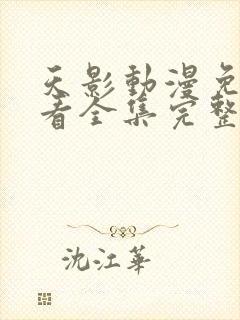 天影動漫免
看全集完整
沈江華